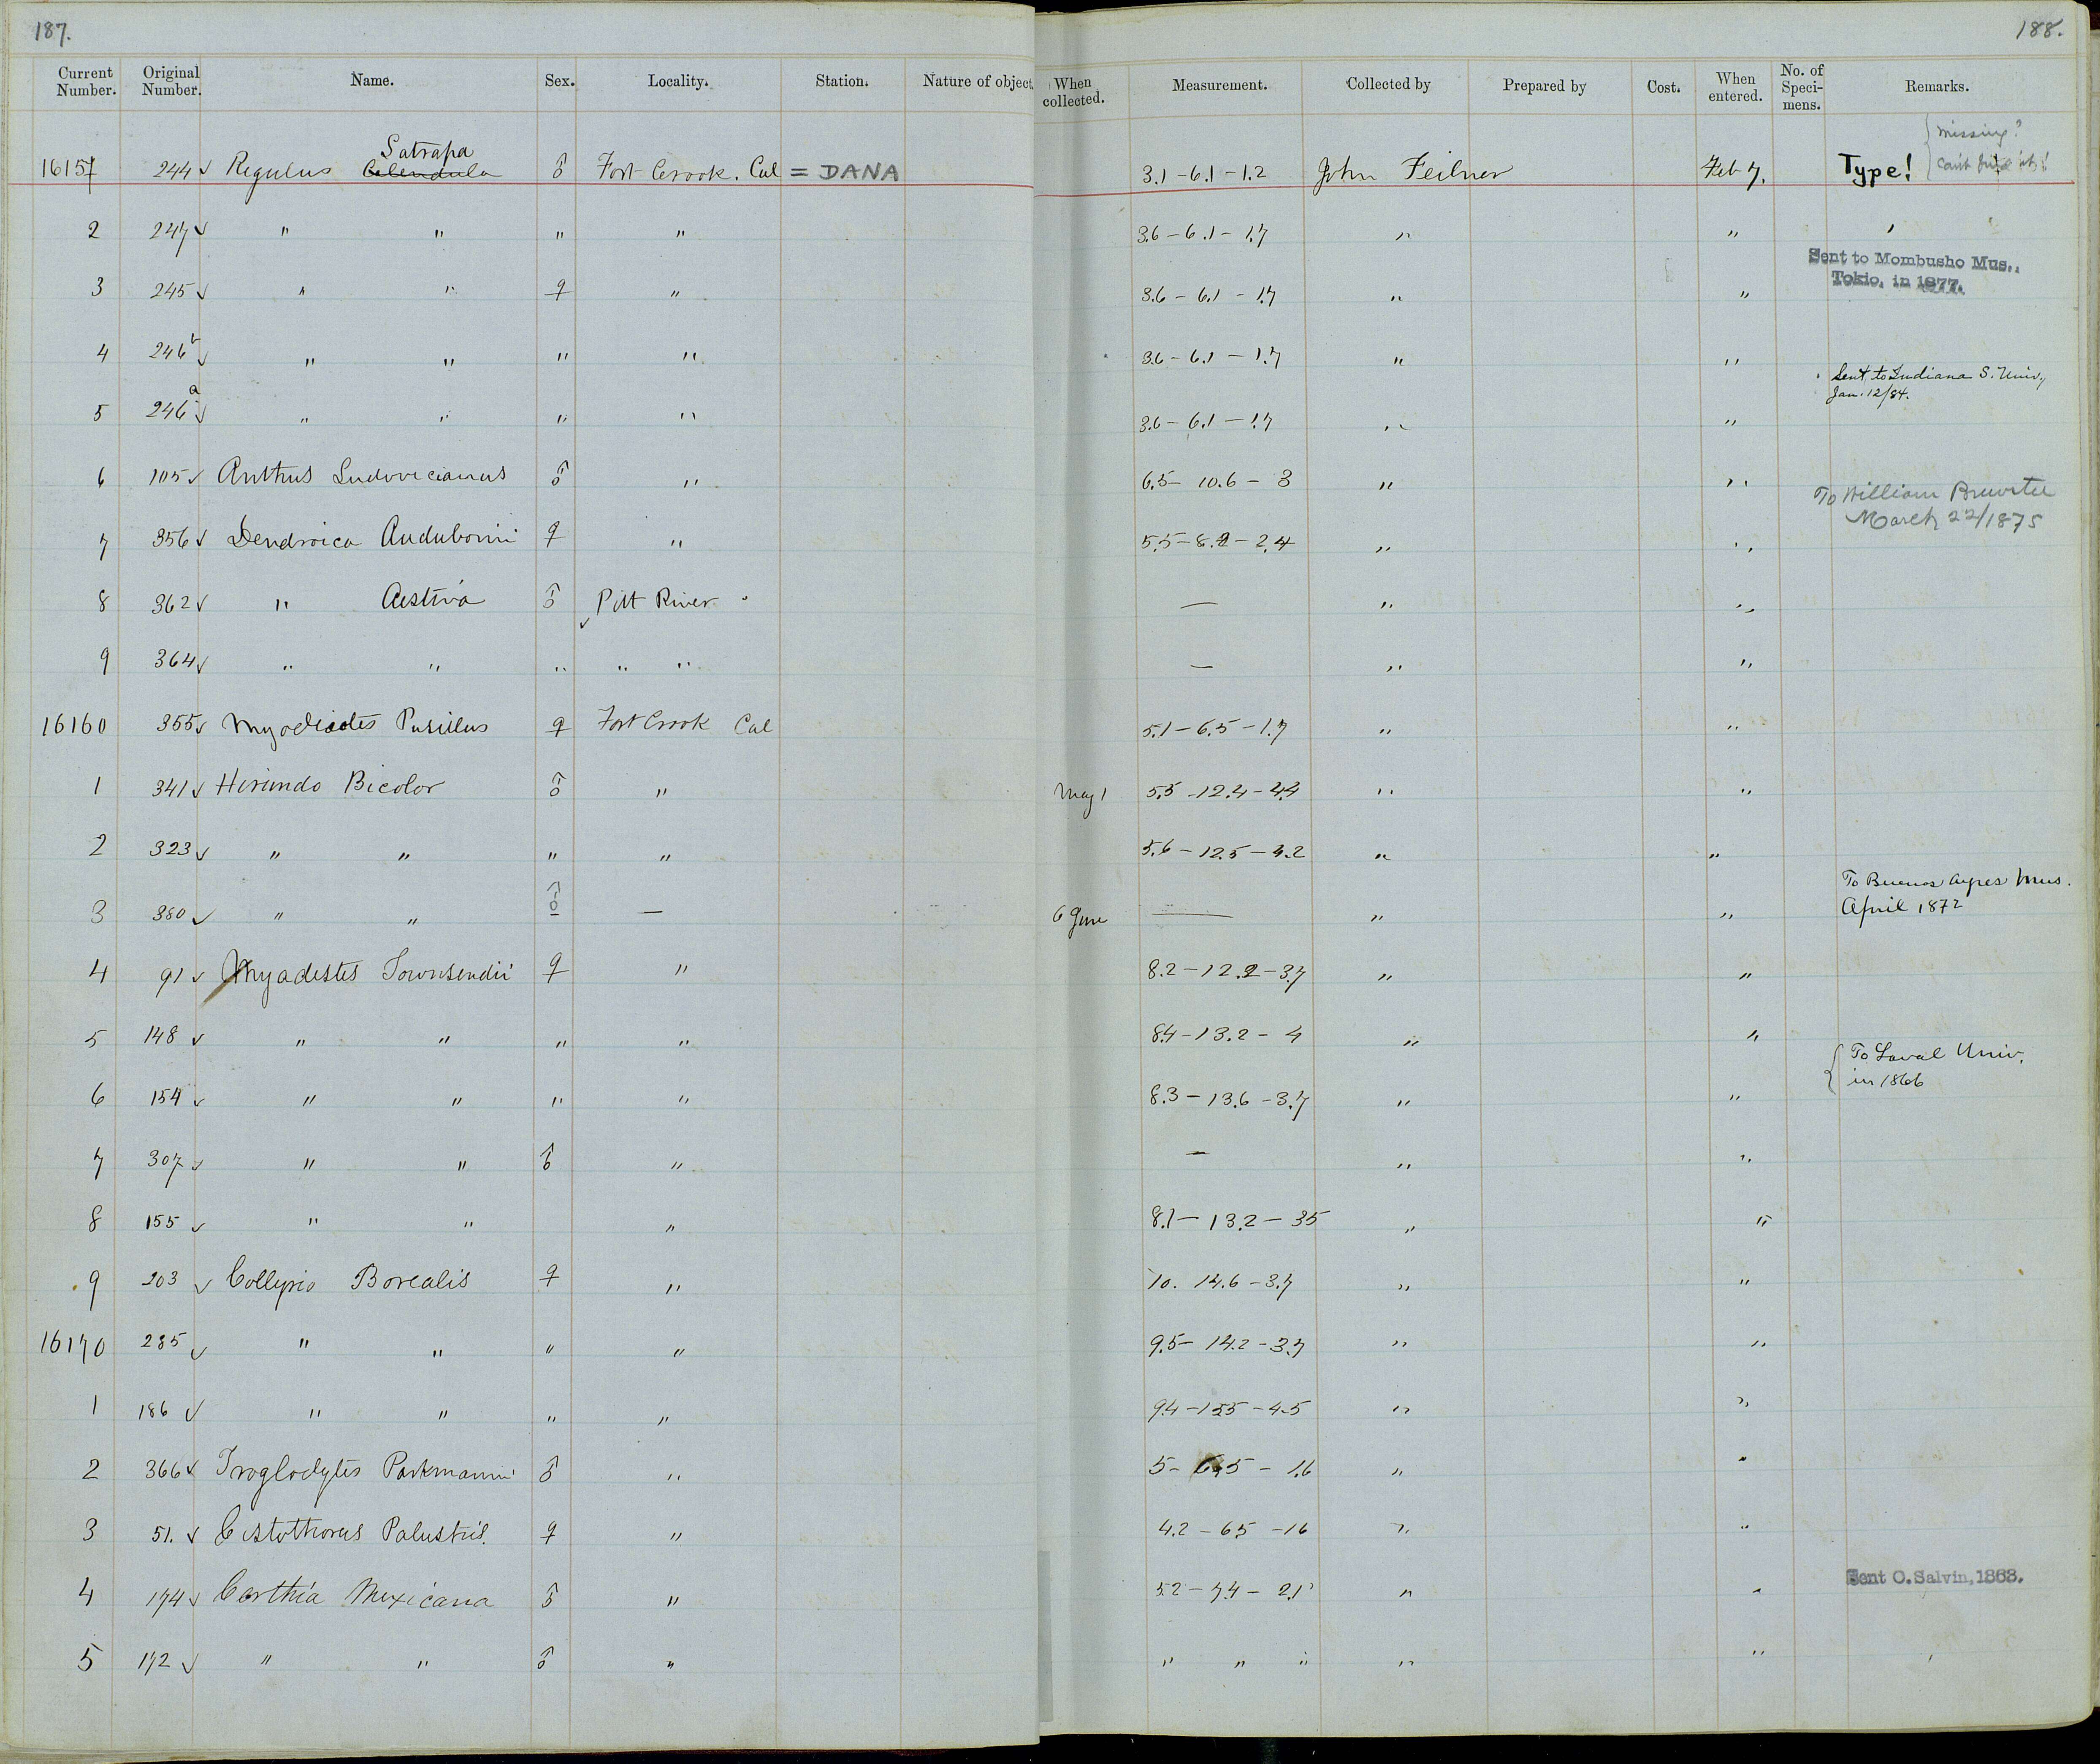 187.
188.
Current Number. Original Number. Name. Sex. Locality. Station. Nature of object. When collected. Measurement. Collected by Prepared by Cost. When entered. No. of Speci-mens. Remarks.
Satrapa missing?
16151 244 ✓ Regulus Calendula ♂ Fort Crook. Cal = DANA 3.1 – 6.1 – 1.2 John Feilner Feb 7. Type! can't find it!
2 247 ✓ " " " " 3.6 – 6.1 – 1.7 " "
Sent to Mombusho Mus., Tokio, in 1877.
3 245 ✓ " " ♀ " 3.6 – 6.1 – 1.7 " "
4 246 b ✓ " " " " 3.6 – 6.1 – 1.7 " "
Sent to Indiana S. Univ, Jan. 12/84.
5 246 a ✓ " " " " 3.6 – 6.1 – 1.7 " "
6 105 ✓ Anthus Ludovicianus ♂ " 6.5 – 10.6 – 3 " "
To William Brewster March 22/1875
7 356 ✓ Dendroica Audubonii ♀ " 5.5 – 8.2 – 2.4 " "
8 362 ✓ " Aestiva ♂ Pitt River — " "
9 364 ✓ " " " " " — " "
16160 355 ✓ Myodioctes Pusillus ♀ Fort Crook Cal 5.1 – 6.5 – 1.7 " "
1 341 ✓ Hirundo Bicolor ♂ " May 1 5.5 – 12.4 – 4.4 " "
2 323 ✓ " " " " 5.6 – 12.5 – 4.2 " "
To Buenos Ayres Mus. April 1872
3 380 ✓ " " ♂ — 6 June — " "
4 91 ✓ Myadestes Townsendii ♀ " 8.2 – 12.2 – 3.7 " "
5 148 ✓ " " " " 8.4 – 13.2 – 4 " "
To Laval Univ. in 1866
6 154 ✓ " " " " 8.3 – 13.6 – 3.7 " "
7 307 ✓ " " ♂ " — " "
8 155 ✓ " " " 8.1 – 13.2 – 35 " "
9 203 ✓ Collyrio Borealis ♀ " 10. 14.6 – 3.7 " "
16170 235 ✓ " " " " 9.5 – 14.2 – 3.7 " "
1 186 ✓ " " " " 9.4 – 15.5 – 4.5 " "
2 366 ✓ Troglodytes Parkmanni ♂ " 5 – 6.5 – 1.6 " "
3 51. ✓ Cistothorus Palustris. ♀ " 4.2 – 65 – 16 " "
4 174 ✓ Certhia Mexicana ♂ " 5.2 – 7.4 – 2.1 " " Sent O. Salvin, 1863.
5 172 ✓ " " ♂ " " " " " "